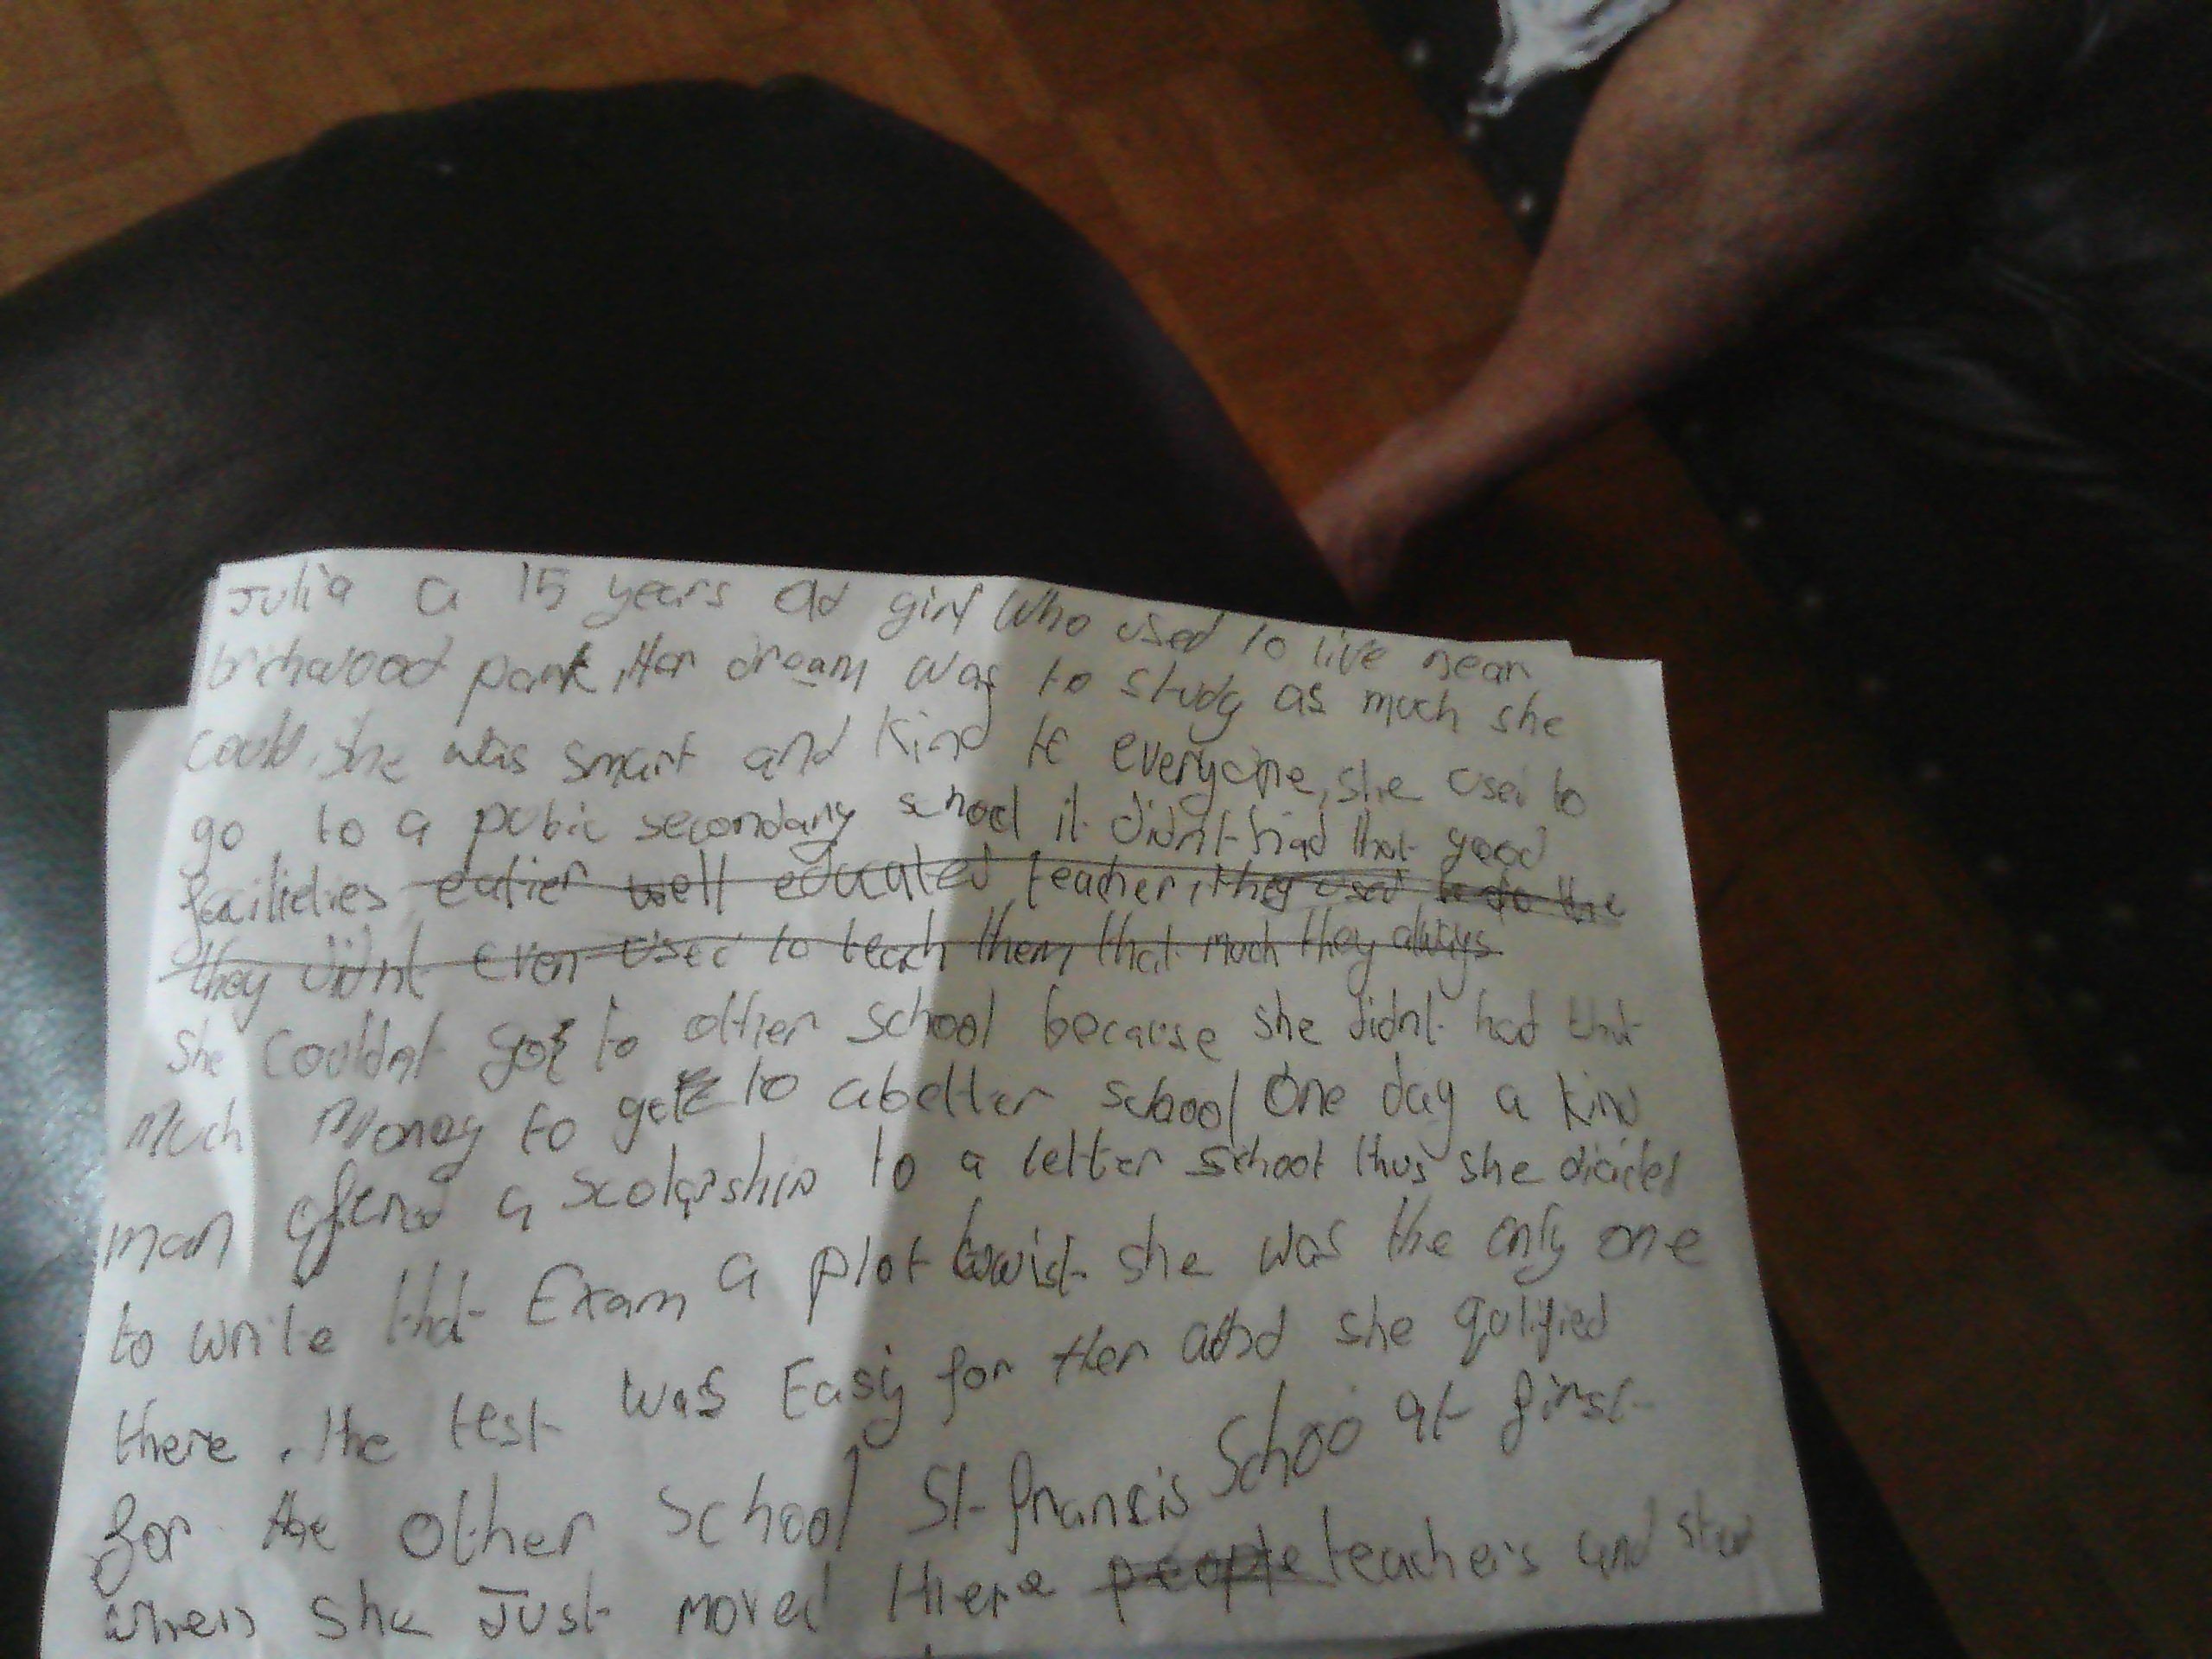 Julia a 15 years old girl who used to live near
brichwood park, Her dream was to study as much she
could, she was smart and kind to everyone, she used to
go to a pubic secondary school it didnt had that good
failieties eatier well educated teacher, they used to do the
they didnt even used to teach them that much they always
she couldnt got to other school because she didnt had that
much money to get to a better school One day a kind
man offered a scolarship to a letter school thus she dicided
to write that Exam a plot twist she was the only one
there. the test was Easy for Her and she qulified
for the other school St francis School at first
when she Just moved there people teachers and